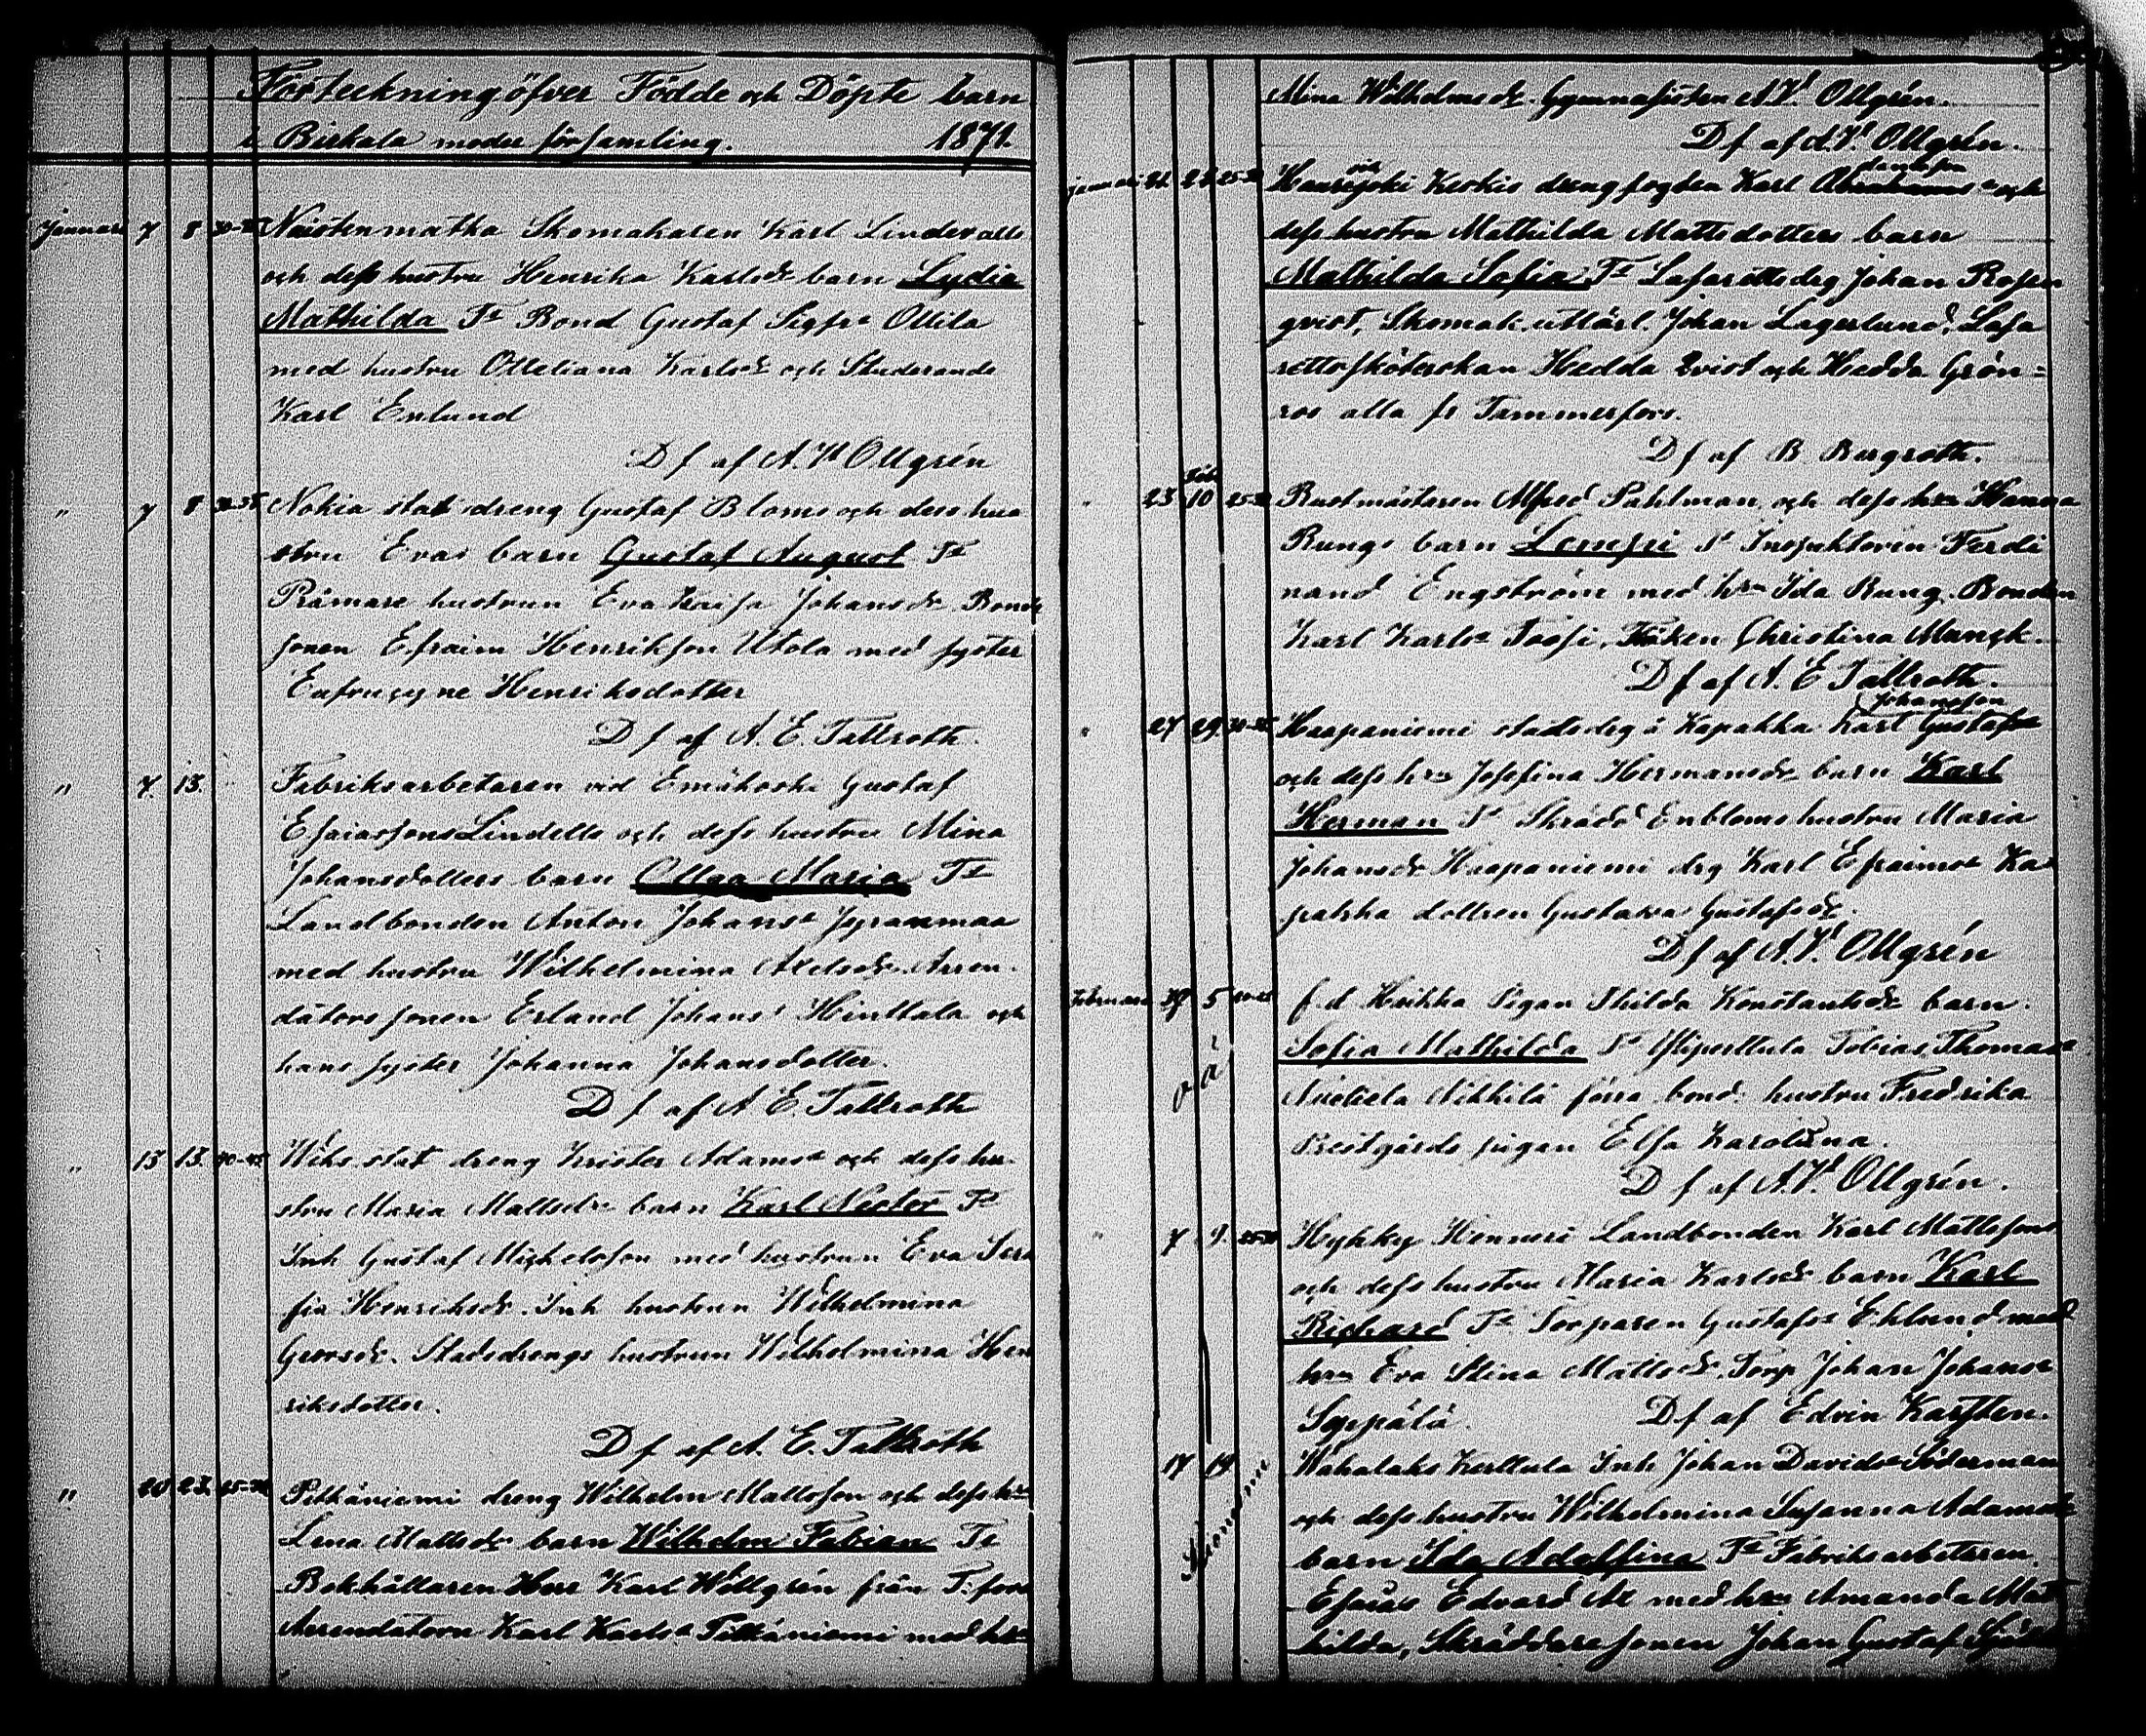 Förteckning öfver Födde och Döpte barn
i Birkala moder församling. 1871.
Januari 7 8 30-35 Naistenmatka Skomakaren Karl Lindevalls
och dess hustru Henrika Karlsdr barn Lydia
Mathilda Ts Bond Gustaf Sigfrs Ollila
med hustru Ottiliana Karlsdr och Studerande
Karl Enlund
D f af A. Vd Ollgrén
" 7 8 30-35 Nokia stat dreng Gustaf Bloms och dess hus
stru Evas barn Gustaf August Ts
Pråmare hustrun Eva Kaisa Johansdr Bonde
sonen Efraim Henriksson Utola med syster
Eufrusyne Henriksdotter
D f af A. E. Tallroth.
" 7. 15. Fabriksarbetaren vid Emäkoski Gustaf
Esaiassons Lindells och dess hustru Mina
Johansdotters barn Olga Maria Ts
Landbonden Anton Johans
med hustru Wilhelmina Axelsdr. Arren-
dators sonen Erland Johans Hinttala och
hans syster Johanna Johansdotter.
D f af A E Tallroth
" 15 15. 40-45 Wiks stat dreng Krister Adams och dess hu-
stru Maria Mattsdr barn Karl Nestor Ts
Inh Gustaf Michelsson med hustrun Eva Sera
fia Henriksdr. Inh hustrun Wilhelmina
Georsdr. Statsdrengs hustrun Wilhelmina Hen
riksdotter.
D f af A. E. Tallroth
" 20 23. 25-30 Pitkäniemi dreng Wilhelm Mattsson och dess h
Lena Mattsdr barn Wilhelm Fabian Ts
Bokhållaren Herr Karl Willgrén från T:fors
Arrendatorn Karl Karls Pitkäniemi med h
Mina Wilhelmsdr. Gymnasisten A. Vd Ollgrén.
D f af A. Vd Ollgrén.
Januari 21. 22 25-30 vid Keskis drengfogden Karl Abrahams och
dess hustru Mathilda Mattsdotters barn
Mathilda Sofia Ts Lasarettsdrg Johan Rosen
qvist, Skomak. utlärl. Johan Lagerlund, Lasa
rettssköterskan Hedda Qvist och Hedda Grön-
ros alla fr Tammerfors.
D f af B Bergroth.
" 23 Feb. 10 25-30 Rustmästaren Alfred Pahlman och dess hru Hanna
Rungs barn Lennni Ts Inspektorin Ferdi
nand Engström med hru Ida Rung. Bonden
Karl Karls Toosi, Fröken Christina Munck.
D f af A. E Tallroth.
Johansson
" 27 29. 30-35 Haapaniemi statsdrg å Kapakka Karl Gustafs
och dess hru Josefina Hermansdr barn Karl
Herman Ts Skrädd Enbloms hustru Maria
Johansdr Haapaniemi drg Karl Efraims Ka
pakka dottren Gustava Gustafsdr.
D f af A. Vd Ollgrén
Februari 5 20-25 f. d. Heikka Pigan Thilda Konstantsdr barn.
oä
Sofia Mathilda Ts Tobias Thomas
Nikkilä förra bond. hustru Fredrika
Prestgårds pigan Elsa Karolina.
D f af A. Vd. Ollgrén.
" 7 9. 25-30 Hyhky Henneri Landbonden Karl Mattssons
och dess hustru Maria Karlsdr barn Karl
Richard Ts Torparen Gustafs Ehlund med
hru Eva Stina Mattsdr. Torp Johan Johans
Seppälä. D f af Edvin Karsten.
17 19. Wahalaks Kerttula Inh Johan Davids Söderman
och dess hustru Wilhelmina Susanna Adamsdr
barn Ida Adolfina Ts Fabriksarbetaren
Esaias Edvard Ax med hru Amanda Mat
hilda, Skräddare sonen Johan Gustaf